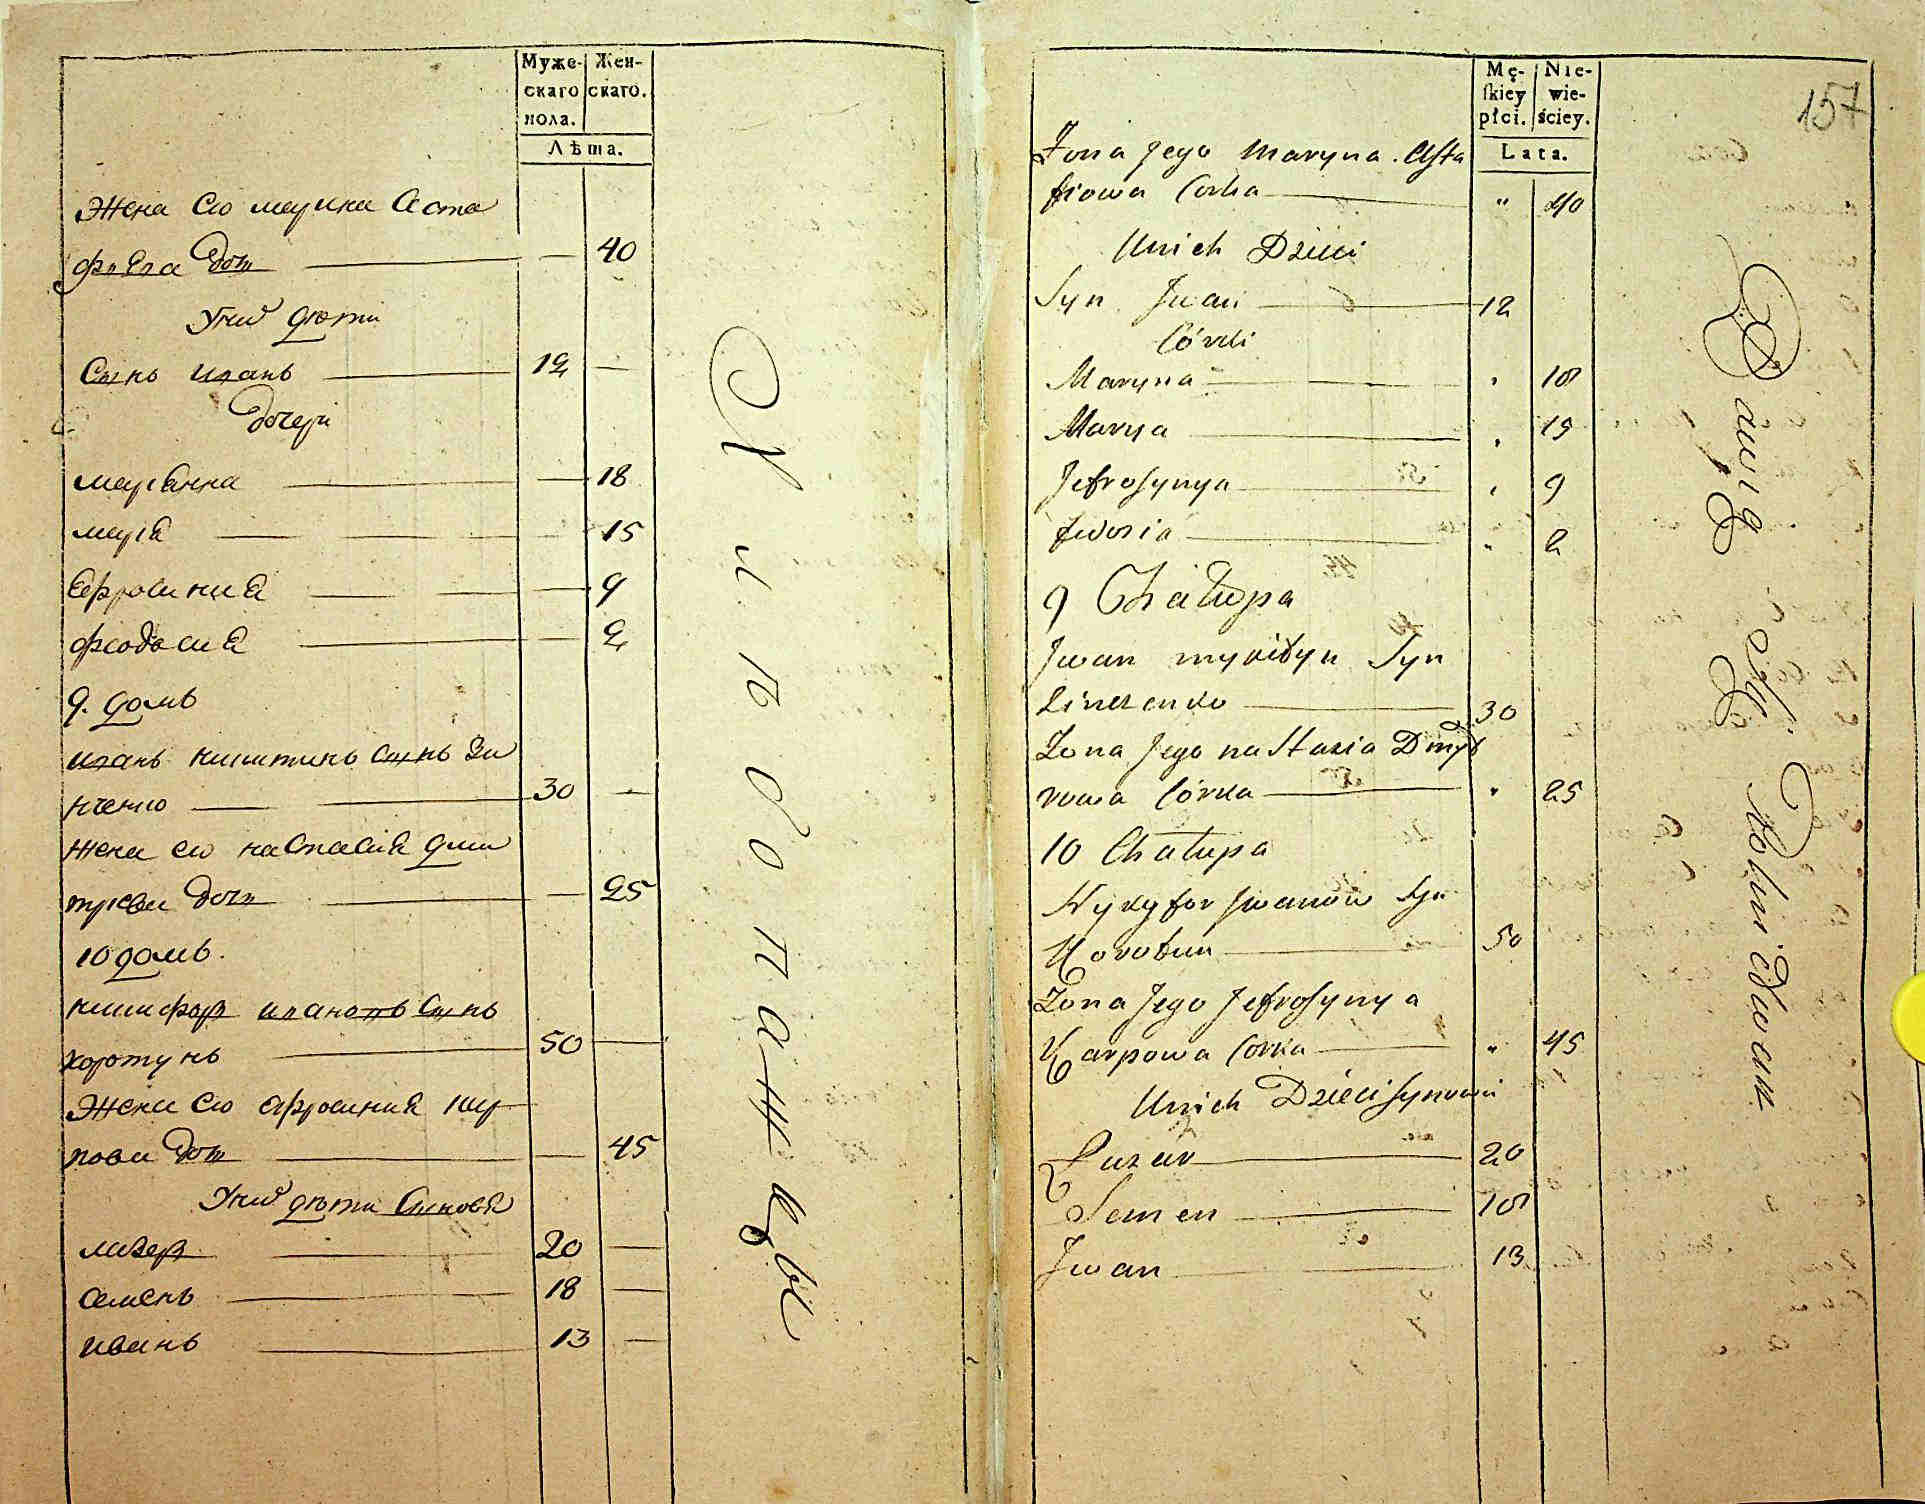 Муже-
скаго
пола.
Жен-
скаго.
Лѣта.
Жена его марина Аста
фиева дочь — 40
У них дѣти
Сынъ иванъ 12 —
дочери
мариянна — 18
мария — 15
Ефросиния — 9
феодосия 2
9. домъ
иванъ никитинъ сынъ Зи
нченко 30 —
Жена его настасия дми
триева дочь — 25
10 домъ.
никифоръ ивановъ сынъ
коротунъ 50 —
Жена его ефросиния кар
пова дочь — 45
У них дѣти Сыновя
лазер 20 —
семенъ 18 —
иванъ 13 —
Хлѣбопажцы
Mę-
skiey
płci.
Nie-
wie-
ściey.
Lata.
157
Żona Jego Maryna. Asta
fiowa Corka " 40
Unich Dzieci
Syn Jwan 12
Córki
Maryna 18
Marya 15
Jefrosynya 9
fwosia " 2
9 Chałupa
Jwan mykityn Syn
Zinczenko 30
Żona Jego nastazia Dmyt
rowa Córka " 25
10 Chałupa
Nykyfor Jwanow Syn
Korotun 50
Żona Jego Jefrosynya
Karpowa Corka " 45
Unich Dzieci Synowie
Łazar 20
Semen 18
Jwan 13